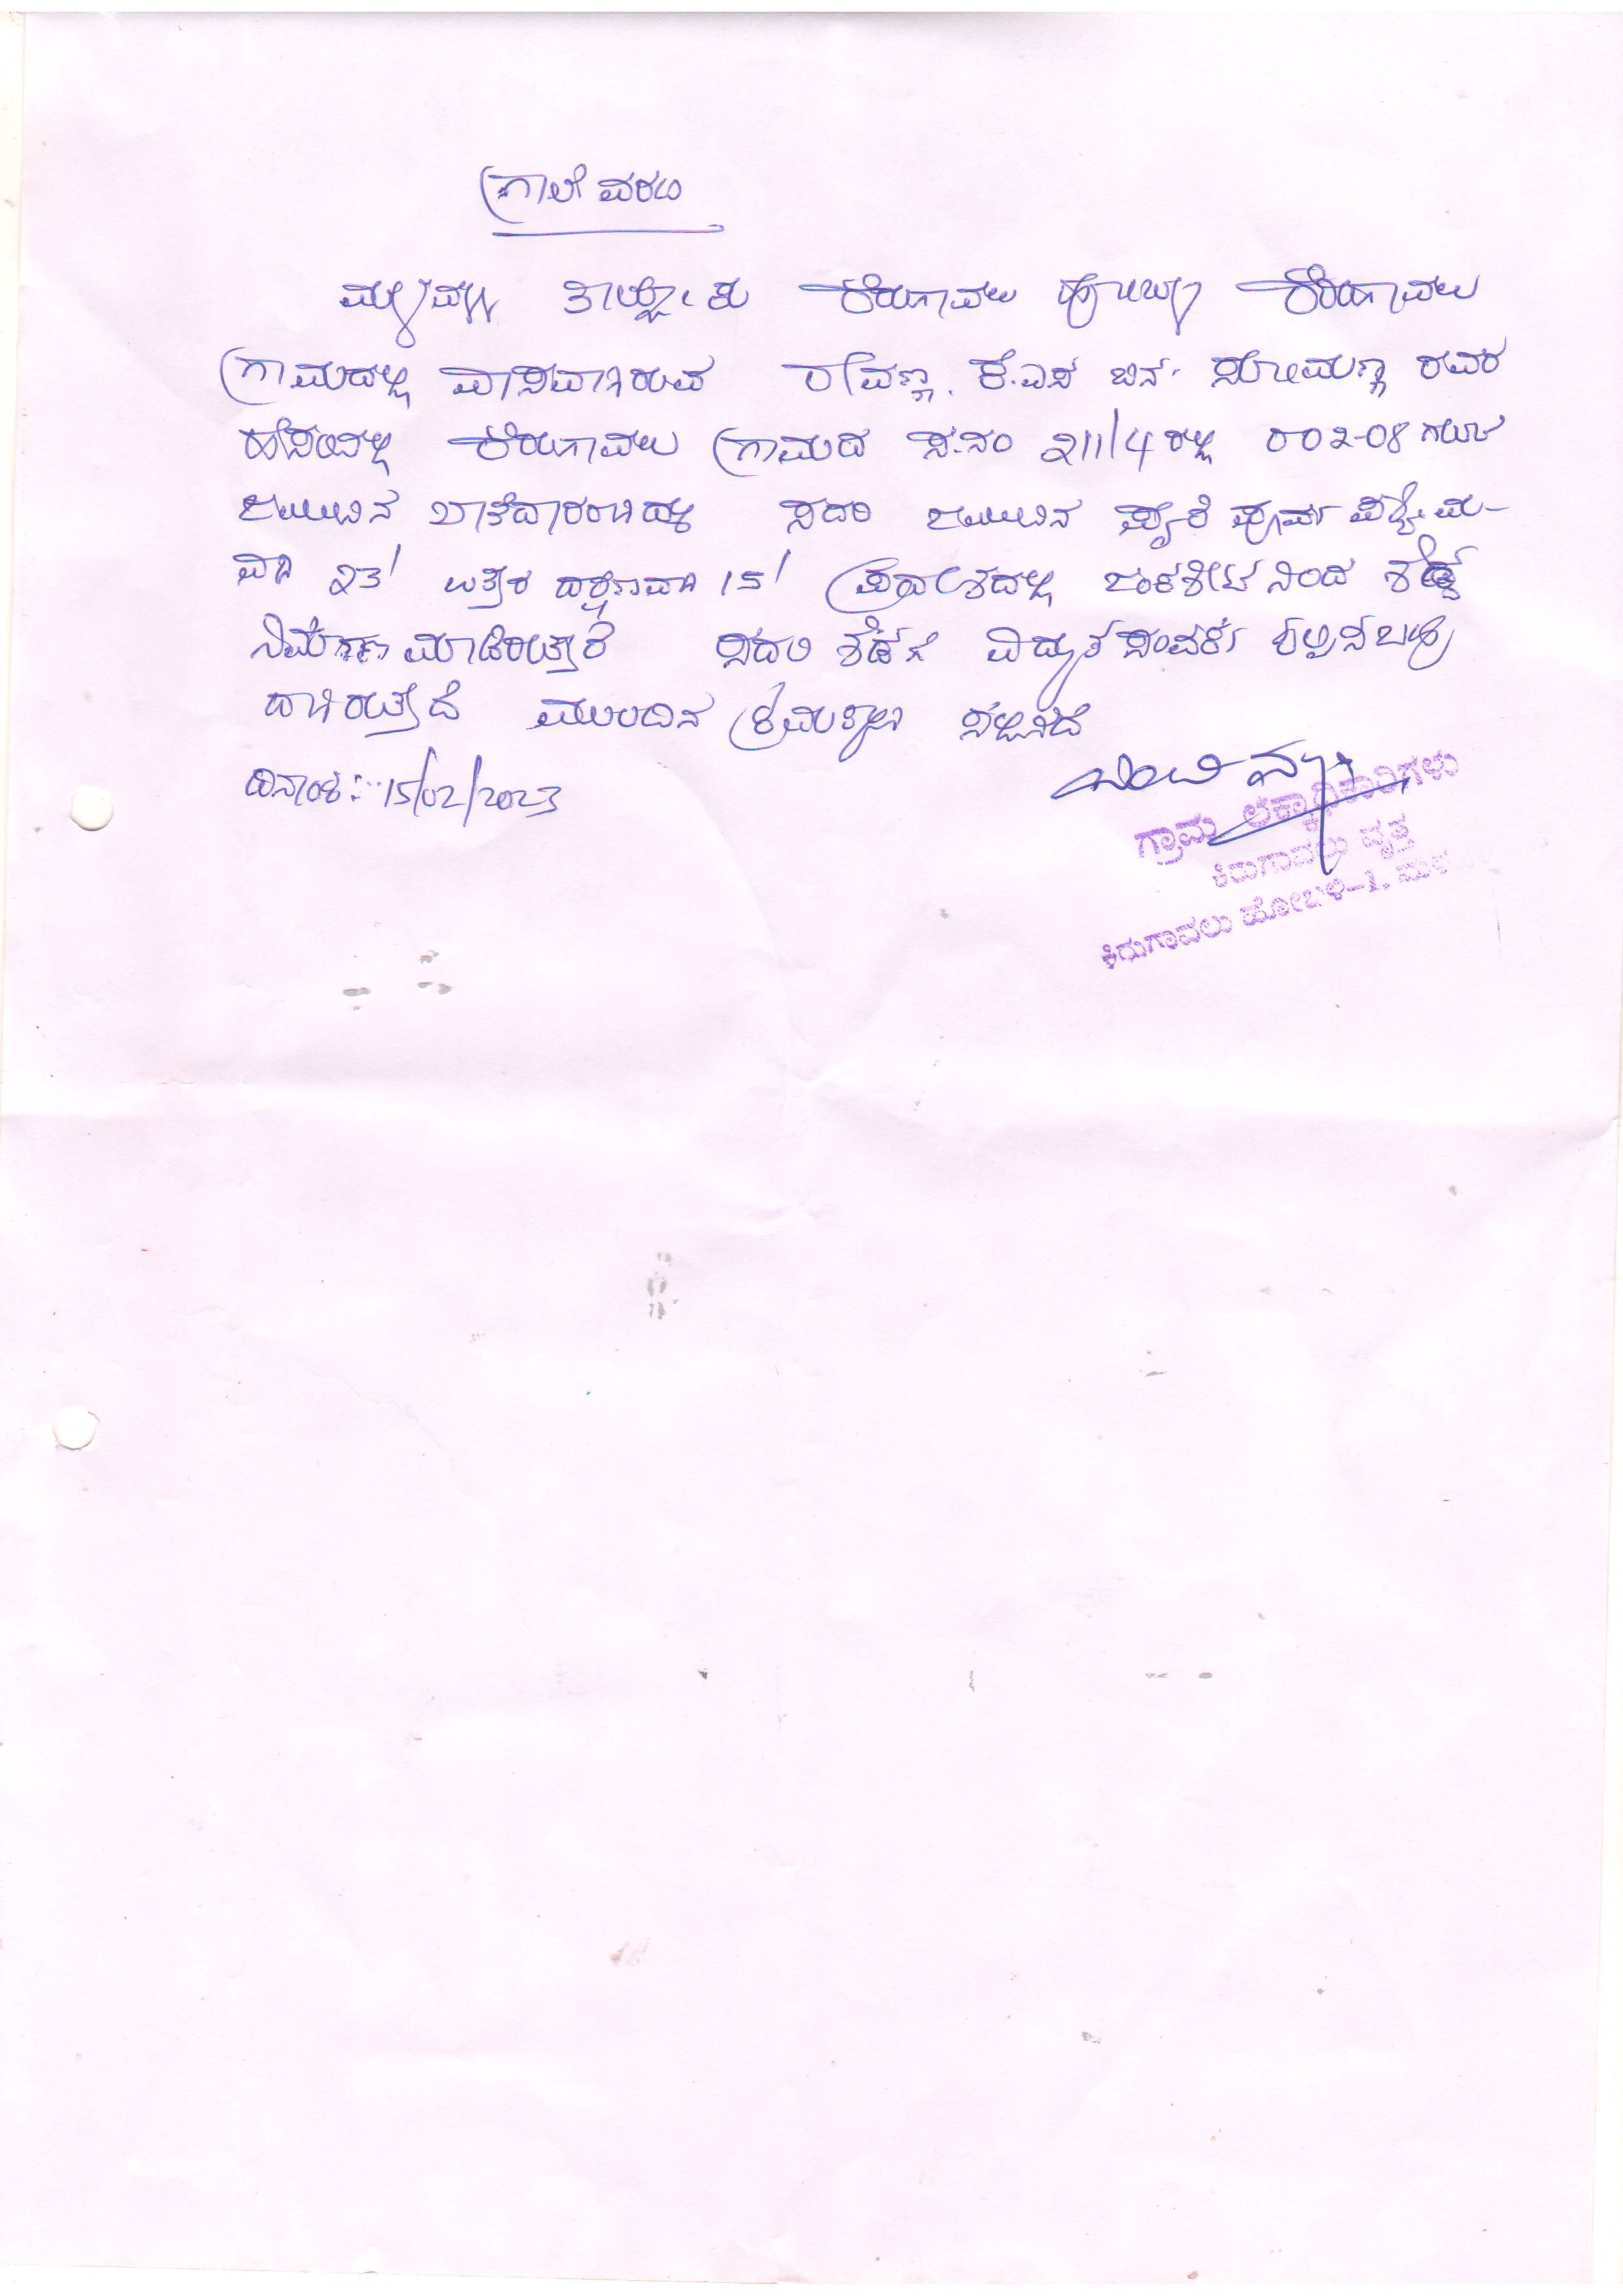 ಗ್ರಾಲೆ ವರದಿ
ಮಳವಳ್ಳಿ ತಾಲ್ಲೋಕು ಕಿರುಗಾವಲು ಹೋಬಳಿ ಕಿರುಗಾವಲು
ಗ್ರಾಮದಲ್ಲಿ ವಾಸವಾಗಿರುವ ರೇವಣ್ಣ. ಕೆ.ಎಸ್ ಬಿನ್ ಸೋಮಣ್ಣ ರವರ
ಹೆಸರಿನಲ್ಲಿ ಕಿರುಗಾವಲು ಗ್ರಾಮದ ಸ.ನಂ 211/4 ರಲ್ಲಿ 002-08 ಗುಂಟೆ
ಜಮೀನಿನ ಖಾತೆದಾರರಾಗಿದ್ದು ಸದರಿ ಜಮೀನಿನ ಪೈಕಿ ಪೂರ್ವ ಪಶ್ಚಿಮ-
ವಾಗಿ 23' ಉತ್ತರ ದಕ್ಷಿಣವಾಗಿ 15' ಪ್ರದೇಶದಲ್ಲಿ ಜಿಂಕ್‌ಶೀಟ್ ನಿಂದ ಶೆಡ್ಡ್
ನಿರ್ಮಾಣ ಮಾಡಿರುತ್ತಾರೆ ಸದರಿ ಶೆಡ್‌ಗೆ ವಿದ್ಯುತ್ ಸಂಪರ್ಕ ಕಲ್ಪಿಸಬಹು
ದಾಗಿರುತ್ತದೆ ಮುಂದಿನ ಕ್ರಮಕ್ಕಾಗಿ ಸಲ್ಲಿಸಿದೆ
ದಿನಾಂಕ :- 15/02/2023
ಗ್ರಾಮ ಲೆಕ್ಕಾಧಿಕಾರಿಗಳು
ಕಿರುಗಾವಲು ವೃತ್ತ
ಕಿರುಗಾವಲು ಹೋಬಳಿ-1.